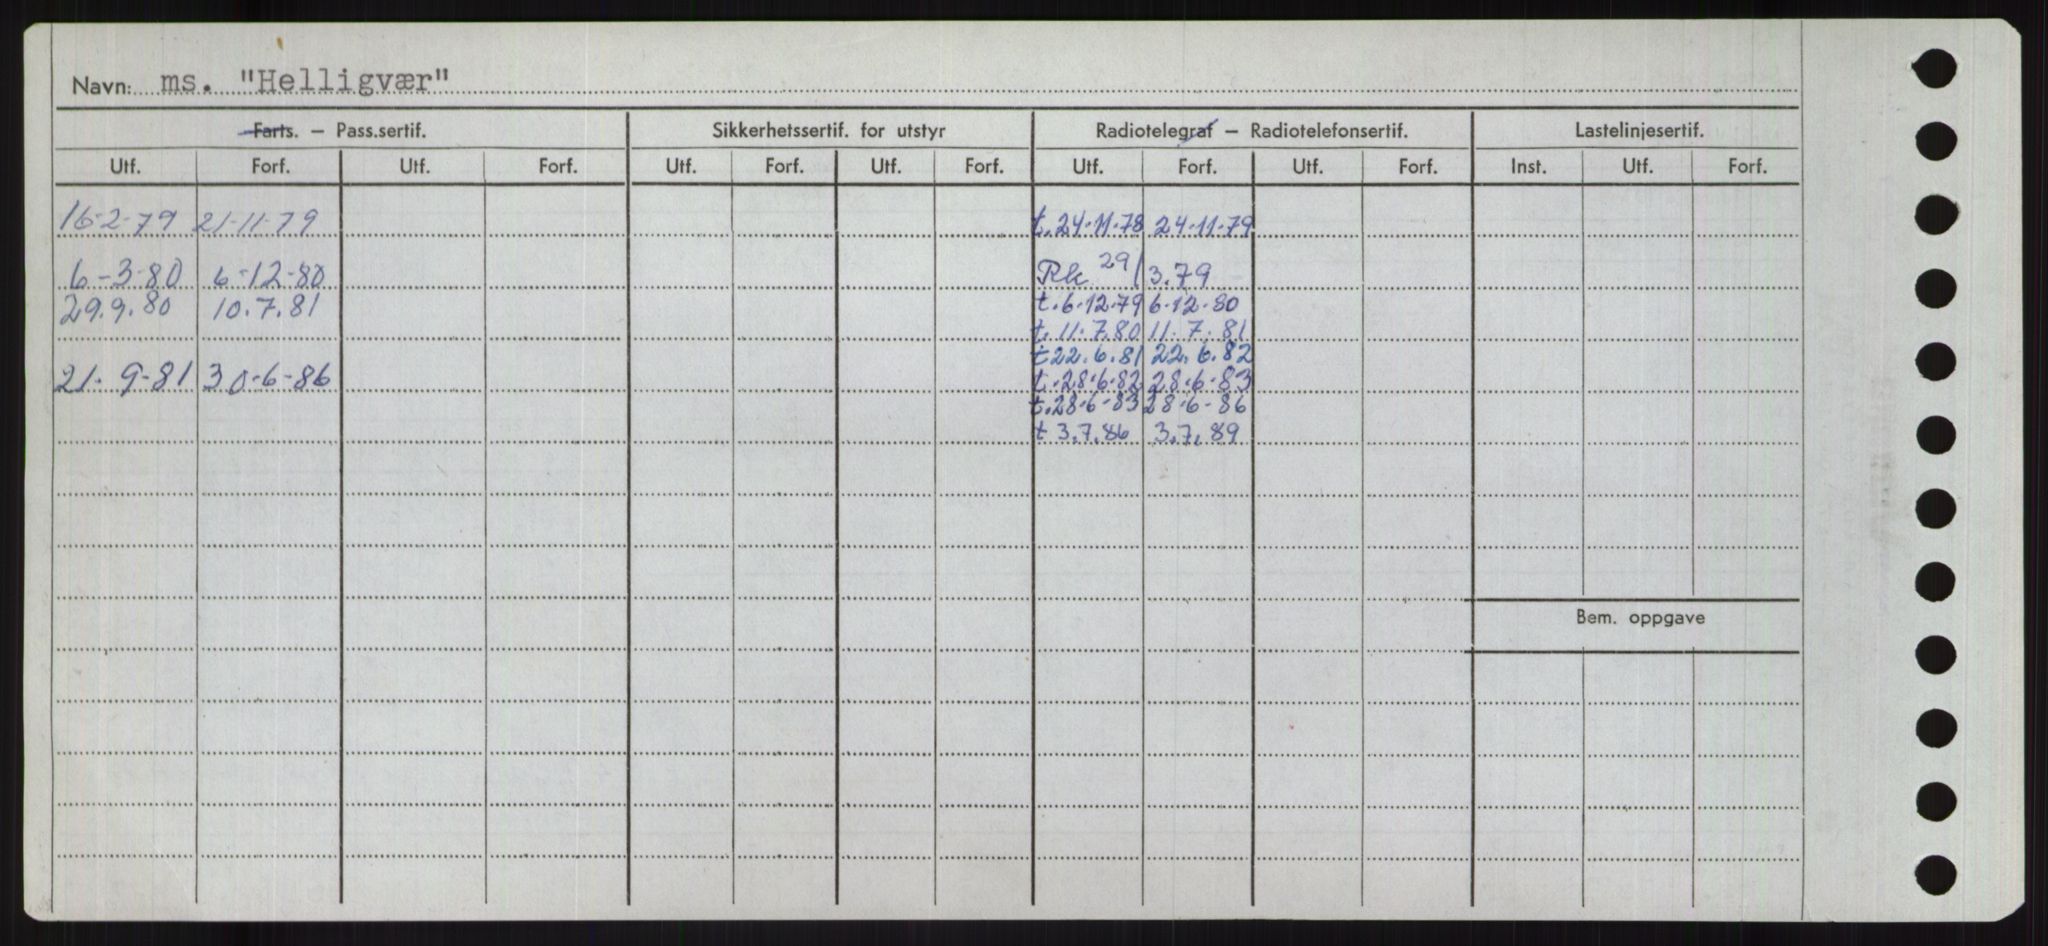 Navn: ms. "Helligvær"
Farts. – Pass.sertif. Sikkerhetssertif. for utstyr Radiotelegraf – Radiotelefonsertif. Lastelinjesertif.
Utf. Forf. Utf. Forf. Utf. Forf. Utf. Forf. Utf. Forf. Utf. Forf. Inst. Utf. Forf.
16-2-79 21-11-79 t.24-11-78 24-11-79
6-3-80 6-12-80 Rk 29/3.79
29.9.80 10.7.81 t.6-12-79 6-12-80
t.11.7.80 11.7.81
t 22.6.81 22.6.82
21.9-81 30-6-86 t.28-6-82 28-6-83
t.28-6-83 28-6-86
t 3.7.86 3.7.89
Bem. oppgave